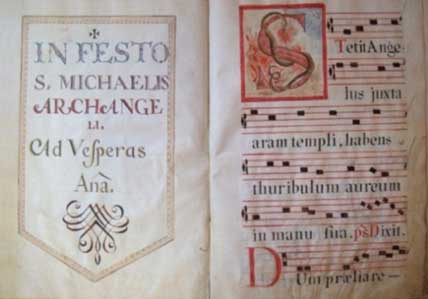 IN FESTO
S. MICHAELIS
ARCHANGE
LI.
Ad Vesperas
Anã.
STetit Ange
lus juxta
aram templi, habens
thuribulum aureum
in manu sua. ps Dixit.
DUm præliare-